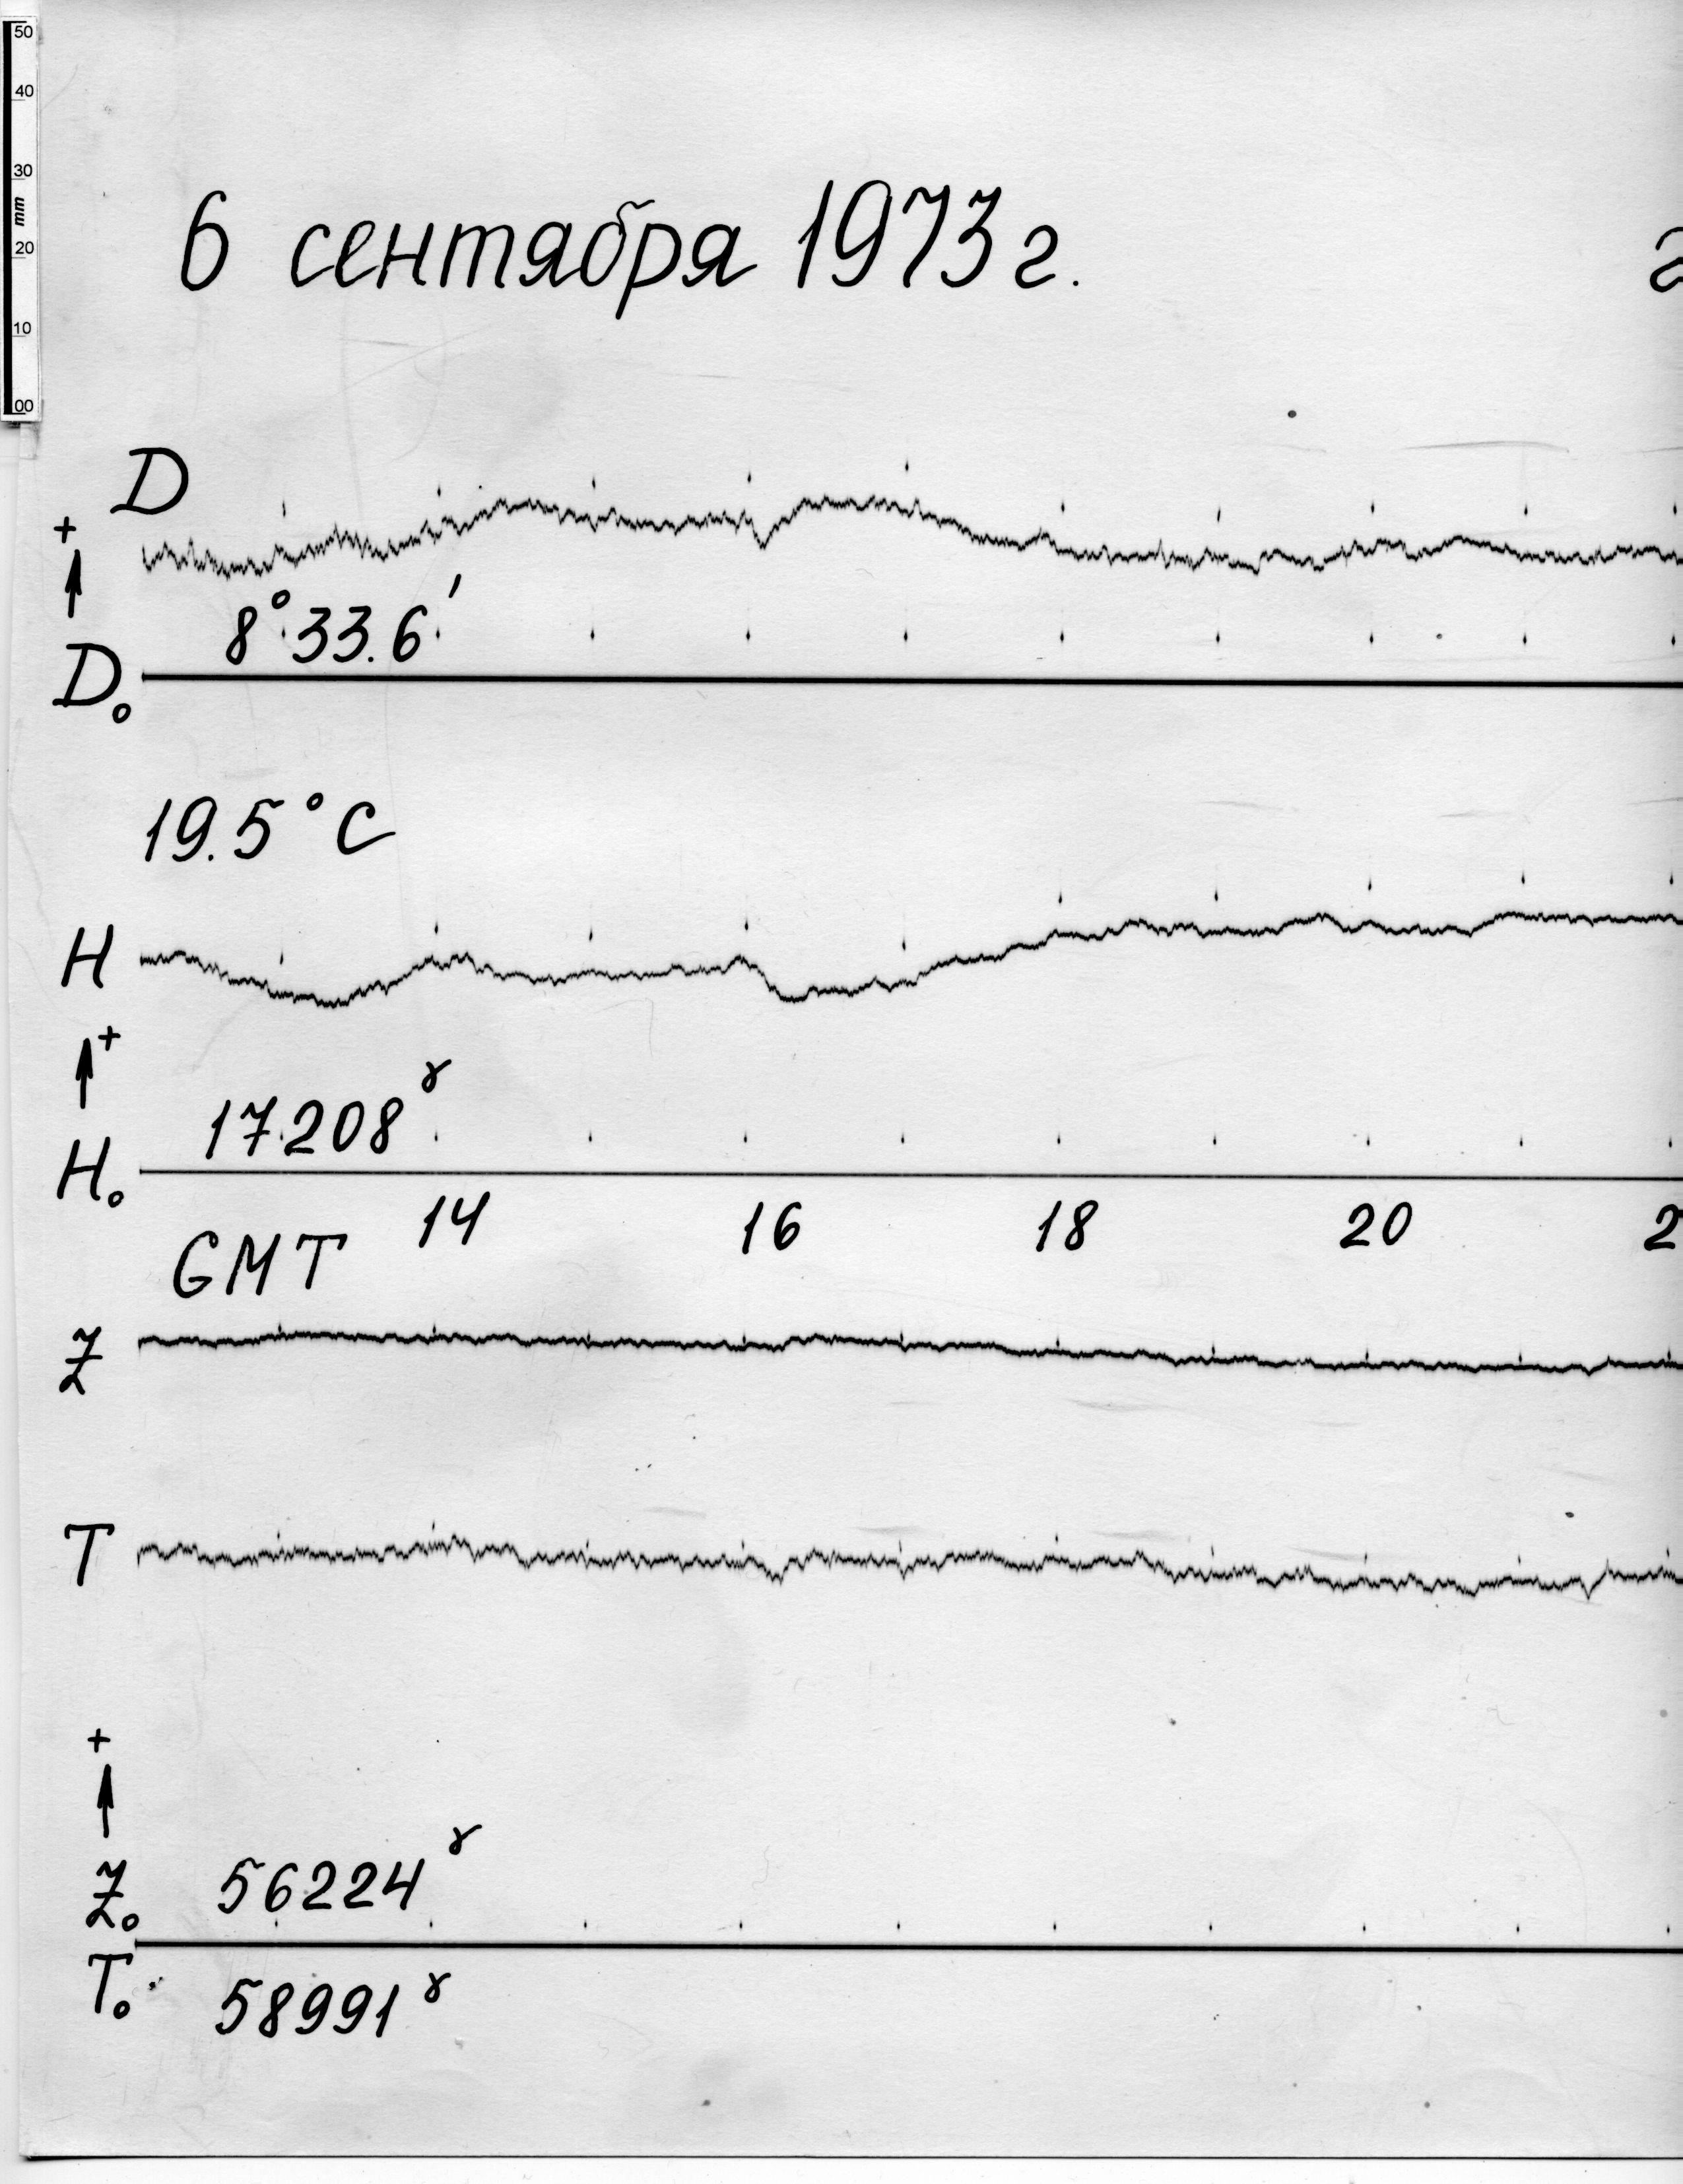 50
40
30
mm
20
10
00
6 сентября 1973 г.
D
+
8°33.6′
D₀
19.5°C
H
+
17208ᵞ
H₀
14 16 18 20
GMT
Z
T
+
Z₀ 56224ᵞ
T₀ 58991ᵞ